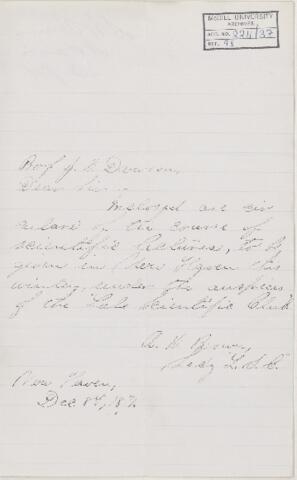 McGILL UNIVERSITY
ARCHIVES
ACC. NO. 224/37
REF. 93
Prof J. W. Dawson,
Dear Sir:
Enclosed are cir
culars of the course of
scientific lectures, to be
given in New Haven this
winter, under the auspices
of the Yale Scientific Club
A. H. Brown,
Secy Y.S.C.
New Haven,
Dec 8th, 187